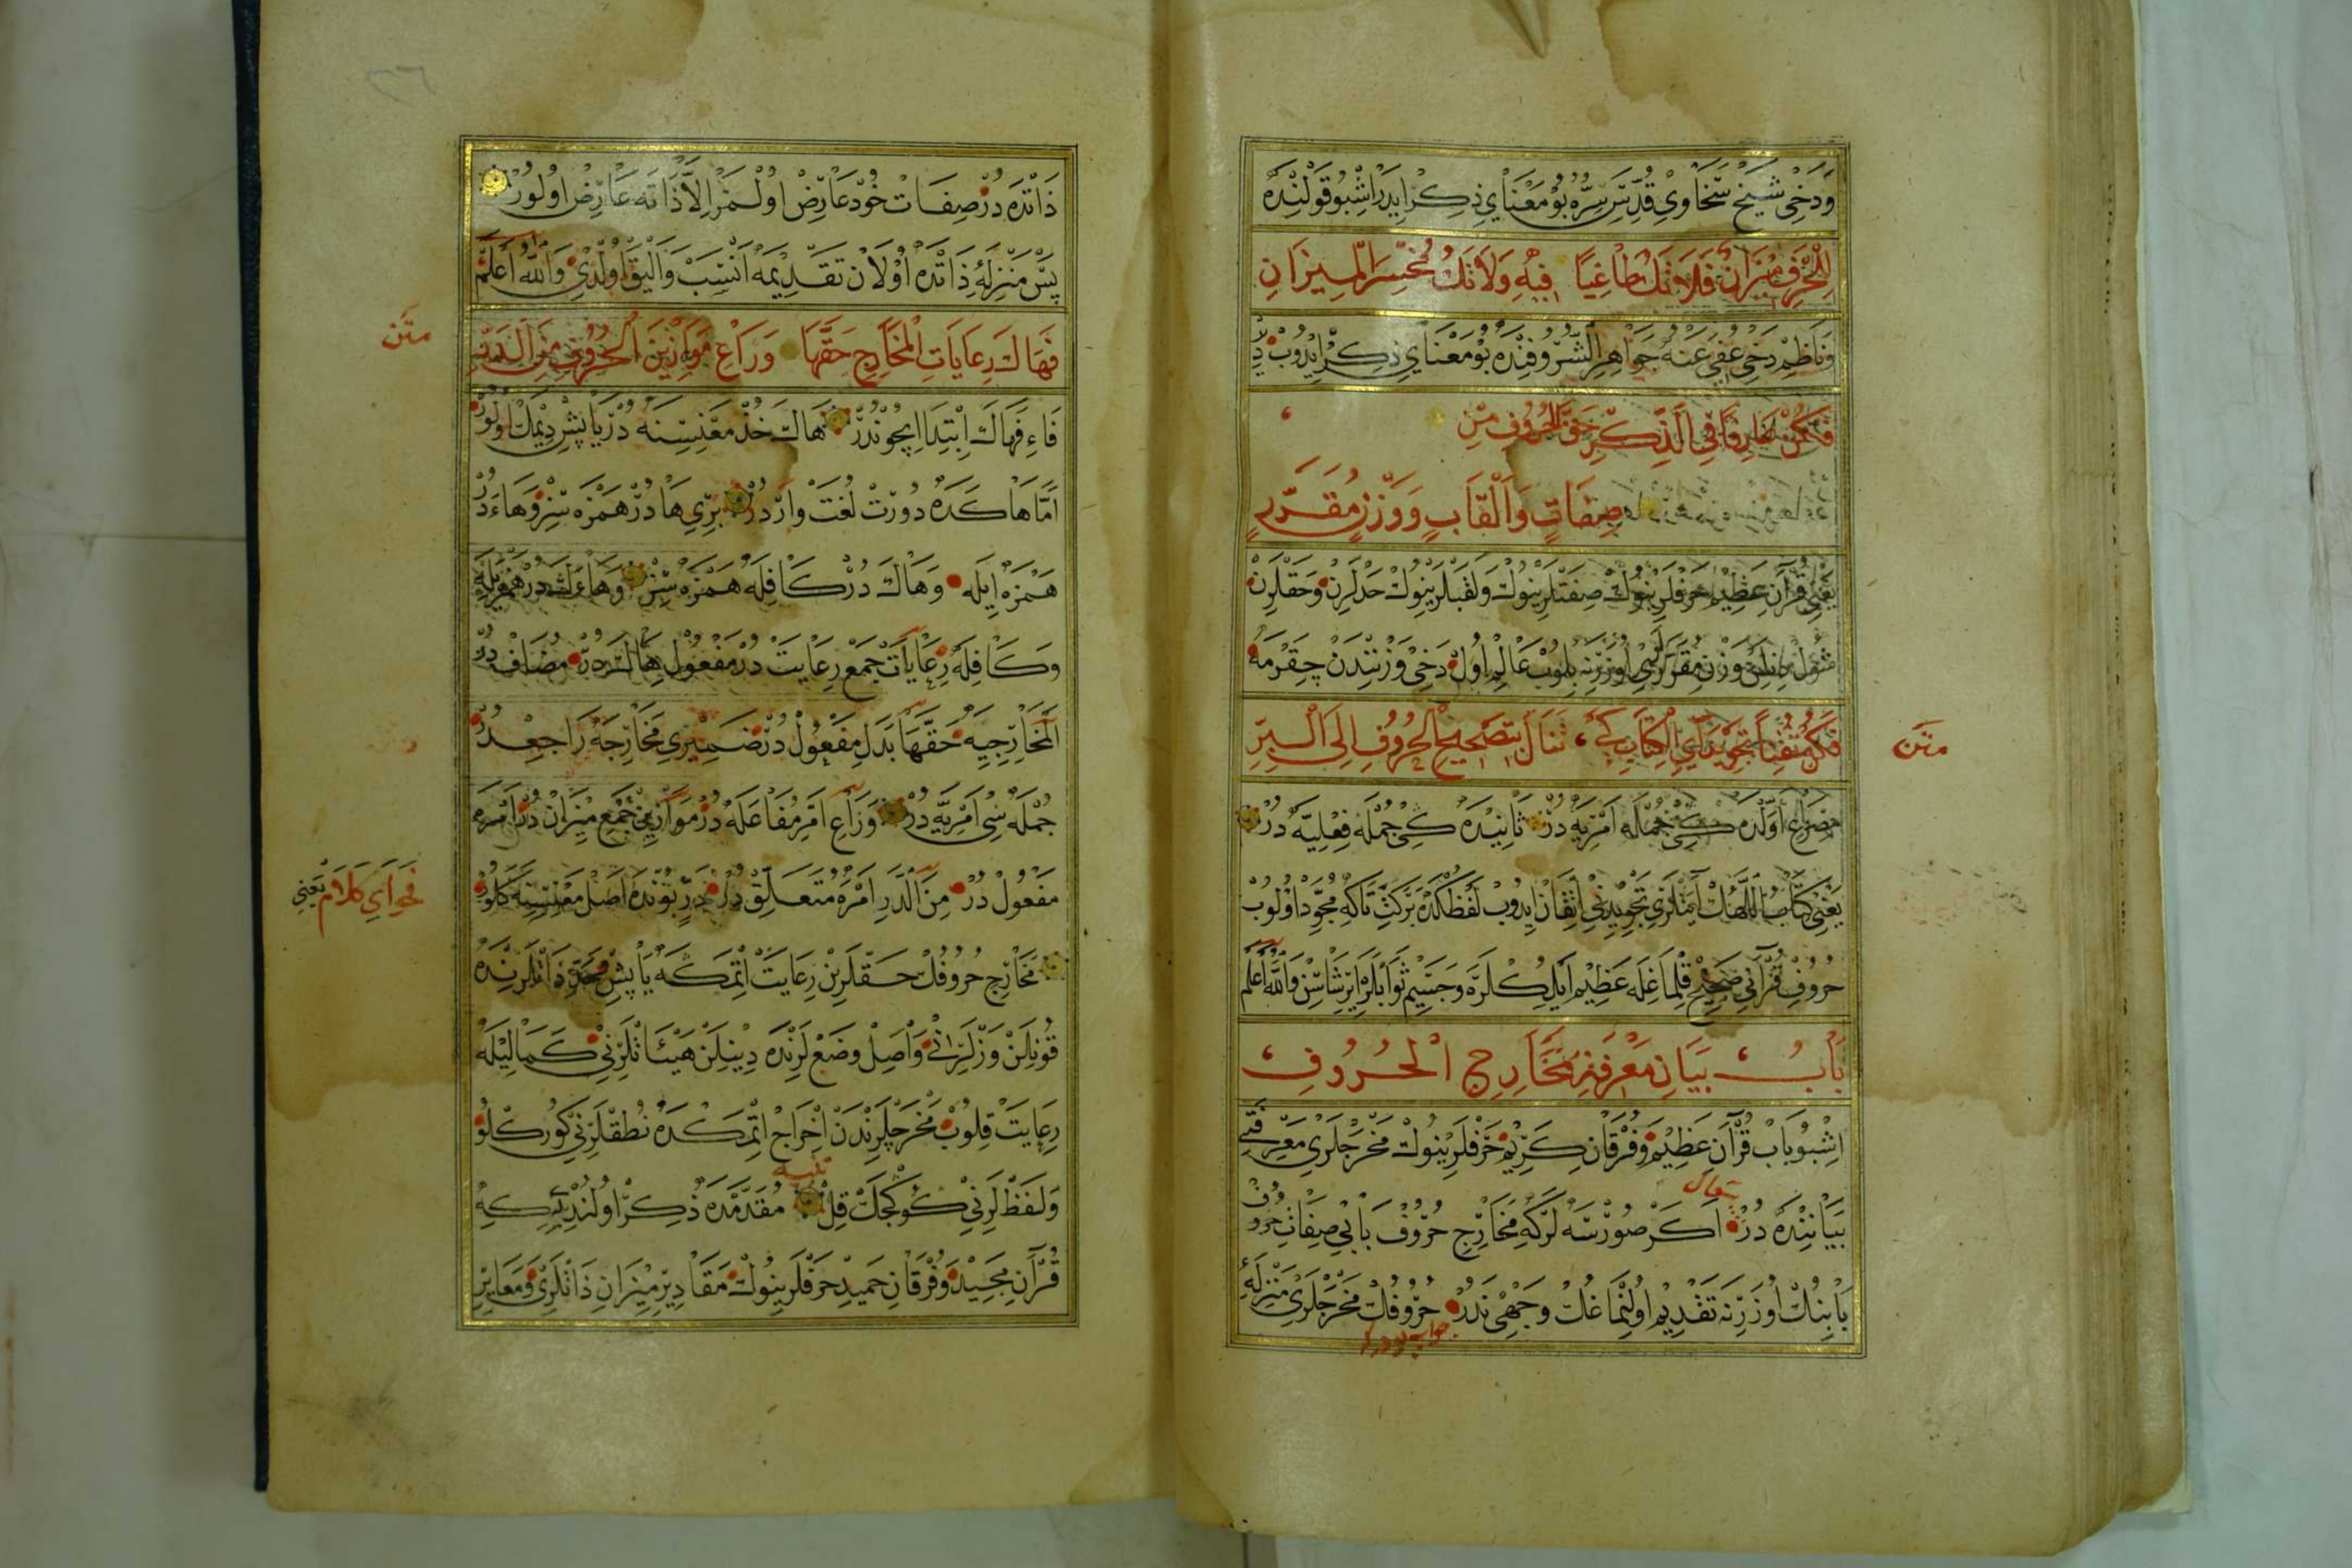 وَدَخِى شَيْخْ سَخَاوِى قُدِّسَ سِرُّهُ بُو مَعْنَايِ ذِكِرْ ايدَرْ اشْبُو قَوْلِنْدَهْ
لِلْحَرْفِ مِيزَانٌ فَلَا تَكُ طَاغِيًا فِيهِ وَلَا تَكُ مُخْسِرَ الْمِيزَانِ
وَنَاظِمْ دَخِى عُفِيَ عَنْهُ جَوَاهِرِ الشُّرُوفِنْدَهْ بُو مَعْنَايِ ذِكِرْ ايدُوبْ دِيرْ
فَكُنْ عَارِفًا فِي الذِّكْرِ حَقَّ الْحُرُوفِ مِنْ
صِفَاتٍ وَاَلْقَابٍ وَوَزْنٍ مُقَرَّرٍ
يَعْنِى قُرْآنِ عَظِيمْ حَرْفْلَرِينُوكْ صِفَتْلَرِينُوكْ وَلَقَبْلَرِينُوكْ حَدْلَرِنْ وَحَقْلَرِنْ
وَزْنِ مُقَرَّرْلَرِى اُوزَرِينَه بِلُوبْ عَالِمْ اُولْ دَخِى وَزْنِنْدَنْ چِقَرْمَهْ
متن
فَكُنْ مُتْقِنًا تَجْوِيدَ آيِ الْكِتَابِ كَيْ تَنَالَ بِتَصْحِيحِ الْحُرُوفِ اِلَى الْبِرِّ
مِصْرَاعِ اَوَّلْدَهْ كِى جُمْلَه اَمْرِيَّه دُرْ ثَانِيدَهْ كِى جُمْلَه فِعْلِيَّه دُرْ
يَعْنِى كِتَابُ اللّٰهُكْ آيَتْلَرِى تَجْوِيدِنِى اِتْقَانْ ايدُوبْ لَفْظُكْدَه بَرْكِتْ تَا كِه مُجَوِّدْ اُولُوبْ
حُرُوفِ قُرْآنِى صَحِيحْ قِلْمَاغِلَه عَظِيمْ اَيْلِكْلَرَه وَجَسِيمْ ثَوَابْلَرَه ايرِشَاسِنْ وَاللّٰهُ اَعْلَمُ
بَابُ بَيَانِ مَعْرِفَةِ مَخَارِجِ الْحُرُوفِ
اشْبُو بَابْ قُرْآنِ عَظِيمْ وَفُرْقَانِ كَرِيمْ حَرْفْلَرِينُوكْ مَخْرَجْلَرِى مَعْرِفَتِى
بَيَانِنْدَهْ دُرْ اَكَرْ صُورَرْسَه لَرْكِه مَخَارِجِ حُرُوفْ بَابِى صِفَاتِ حُرُوفْ
سؤال
بَابِنُكْ اُوزَرِينَه تَقْدِيمْ اُولِنْمَاغُكْ وَجْهِى نَدُرْ حُرُوفُكْ مَخْرَجْلَرِى مَنْزِلَهِٔ
جواب
ذَاتْدَه دُرْ صِفَاتْ خُودْ عَارِضْ اُولْمَزْ اِلَّا ذَاتَه عَارِضْ اُولُورْ
پَسْ مَنْزِلَهِٔ ذَاتْدَه اُوْلَانْ تَقْدِيمَه اَنْسَبْ وَاَلْيَقْ اُولْدِى وَاللّٰهُ اَعْلَمُ
متن
فَهَاكَ رِعَايَاتِ الْمَخَارِجِ حَقَّهَا وَرَاعِ مَوَازِينَ الْحُرُوفِ مِنَ الدَّرِّ
فَاءِ فَهَاكَ اِبْتِدَا اِيچُونْدُرْ هَاكَ خُذْ مَعْنِسِنَه دُرْ يَاپِشْ دِيْمَكْ اُولُورْ
اَمَّا هَا كَدَه دُورْتْ لُغَتْ وَارْدُرْ بِرِى هَا دُرْ هَمْزَه سِزْ وَهَاءَ دُرْ
هَمْزَه اِيلَه وَهَاكَ دُرْ كَافِلَه هَمْزَه سِزْ وَهَاءَكَ دُرْ هَمْزَيْلَه
وَكَافِلَه رِعَايَاتْ جَمْعِ رِعَايَتْ دُرْ مَفْعُولِ هَاكَ دُرْ مُضَافْ دُرْ
اَلْمَخَارِجِيَه حَقَّهَا بَدَلِ مَفْعُولْ دُرْ ضَمِيرِى مَخَارِجَه رَاجِعْ دُرْ
جُمْلَه سِى اَمْرِيَّه دُرْ وَرَاعِ اَمْرِ مُفَاعَلَه دُرْ مَوَازِينْ جَمْعِ مِيزَانْ دُرْ اَمْرَه
مَفْعُولْ دُرْ مِنَ الدَّرِ اَمْرَه مُتَعَلِّقْ دُرْ دَرِّ بُونْدَه اَصْلْ مَعْنِسِنَه كَلُورْ
فحواى كلام يعنى
مَخَارِجِ حُرُوفُكْ حَقْلَرِنْ رِعَايَتْ اِتْمَكَه يَاپِشْ ذَاتْلَرِنْدَه
قُونِلَنْ وَزْنْلَرِنِى وَاَصِلْ وَضْعْ لَرِنْدَه دِينِلَنْ هَيْئَاتْلَرِنِى كَمَالِيْلَه
رِعَايَتْ قِلُوبْ مَخْرَجْلَرِنْدَنْ اِخْرَاجْ اِتْمَكْدَه نُطْقْلَرِنِى كُورْكْلُو
تنبيه
وَلَفْظْ لَرِنِى كُوكْچَكْ قِلْ مُقَدَّمَدَه ذِكِرْ اُولُنْدِى كِه
قُرْآنِ مَجِيدْ وَفُرْقَانِ حَمِيدْ حَرْفْلَرِينُوكْ مَقَادِيرِ مِيزَانِ ذَاتْلَرِى وَمَعَايِيرِ